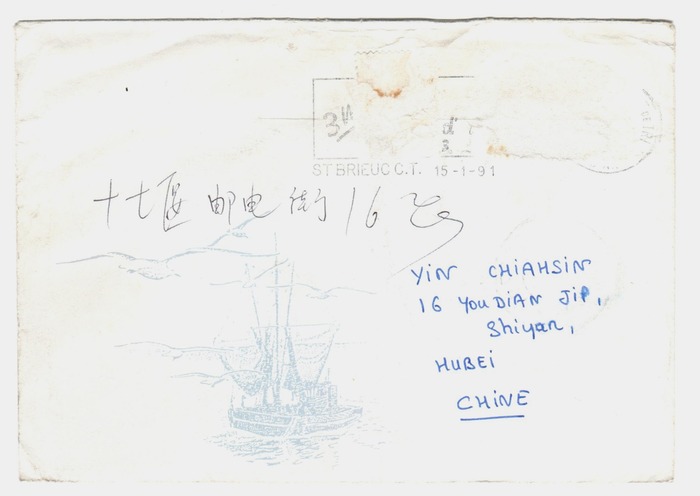 3
d'
ST BRIEUC C.T. 15-1-91
十七堰邮电街16号
YiN CHiAHSiN
16 YOUDiAN JiP,
Shiyan,
HUBEi
CHiNE